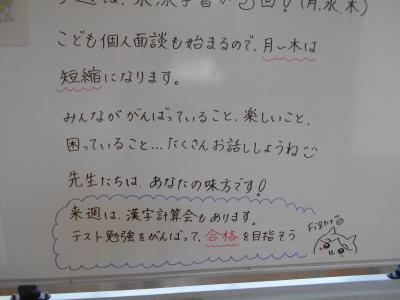 は、水泳学習が3回!(月、水、木)
こども個人面談も始まるので、月〜木は
短縮になります。
みんながんばっていること、楽しいこと、
困っていること…たくさんお話ししようね
先生たちは、あなたの味方です!
来週は、漢字計算会もあります。
テスト勉強をがんばって、合格を目指そう
Fight